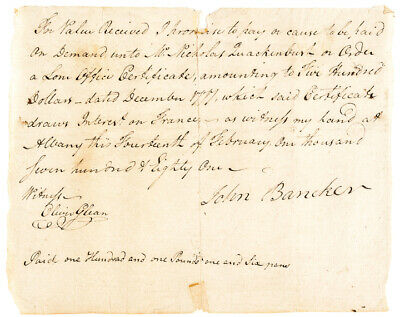 In Value Received I promise to pay or cause to be paid
On Demand unto Mr Nicholas Quackenbust or Order
a Loan Office Certificate, amounting to Five Hundred
Dollars dated December 1777, which said Certificate
draws Interest on France,- as witness my hand at
Albany this Fourteenth of February One thousand
Seven hundred & Eighty One
John Bancker
Witness
Glean
Paid one Hundred and one Pounds one and Six pence